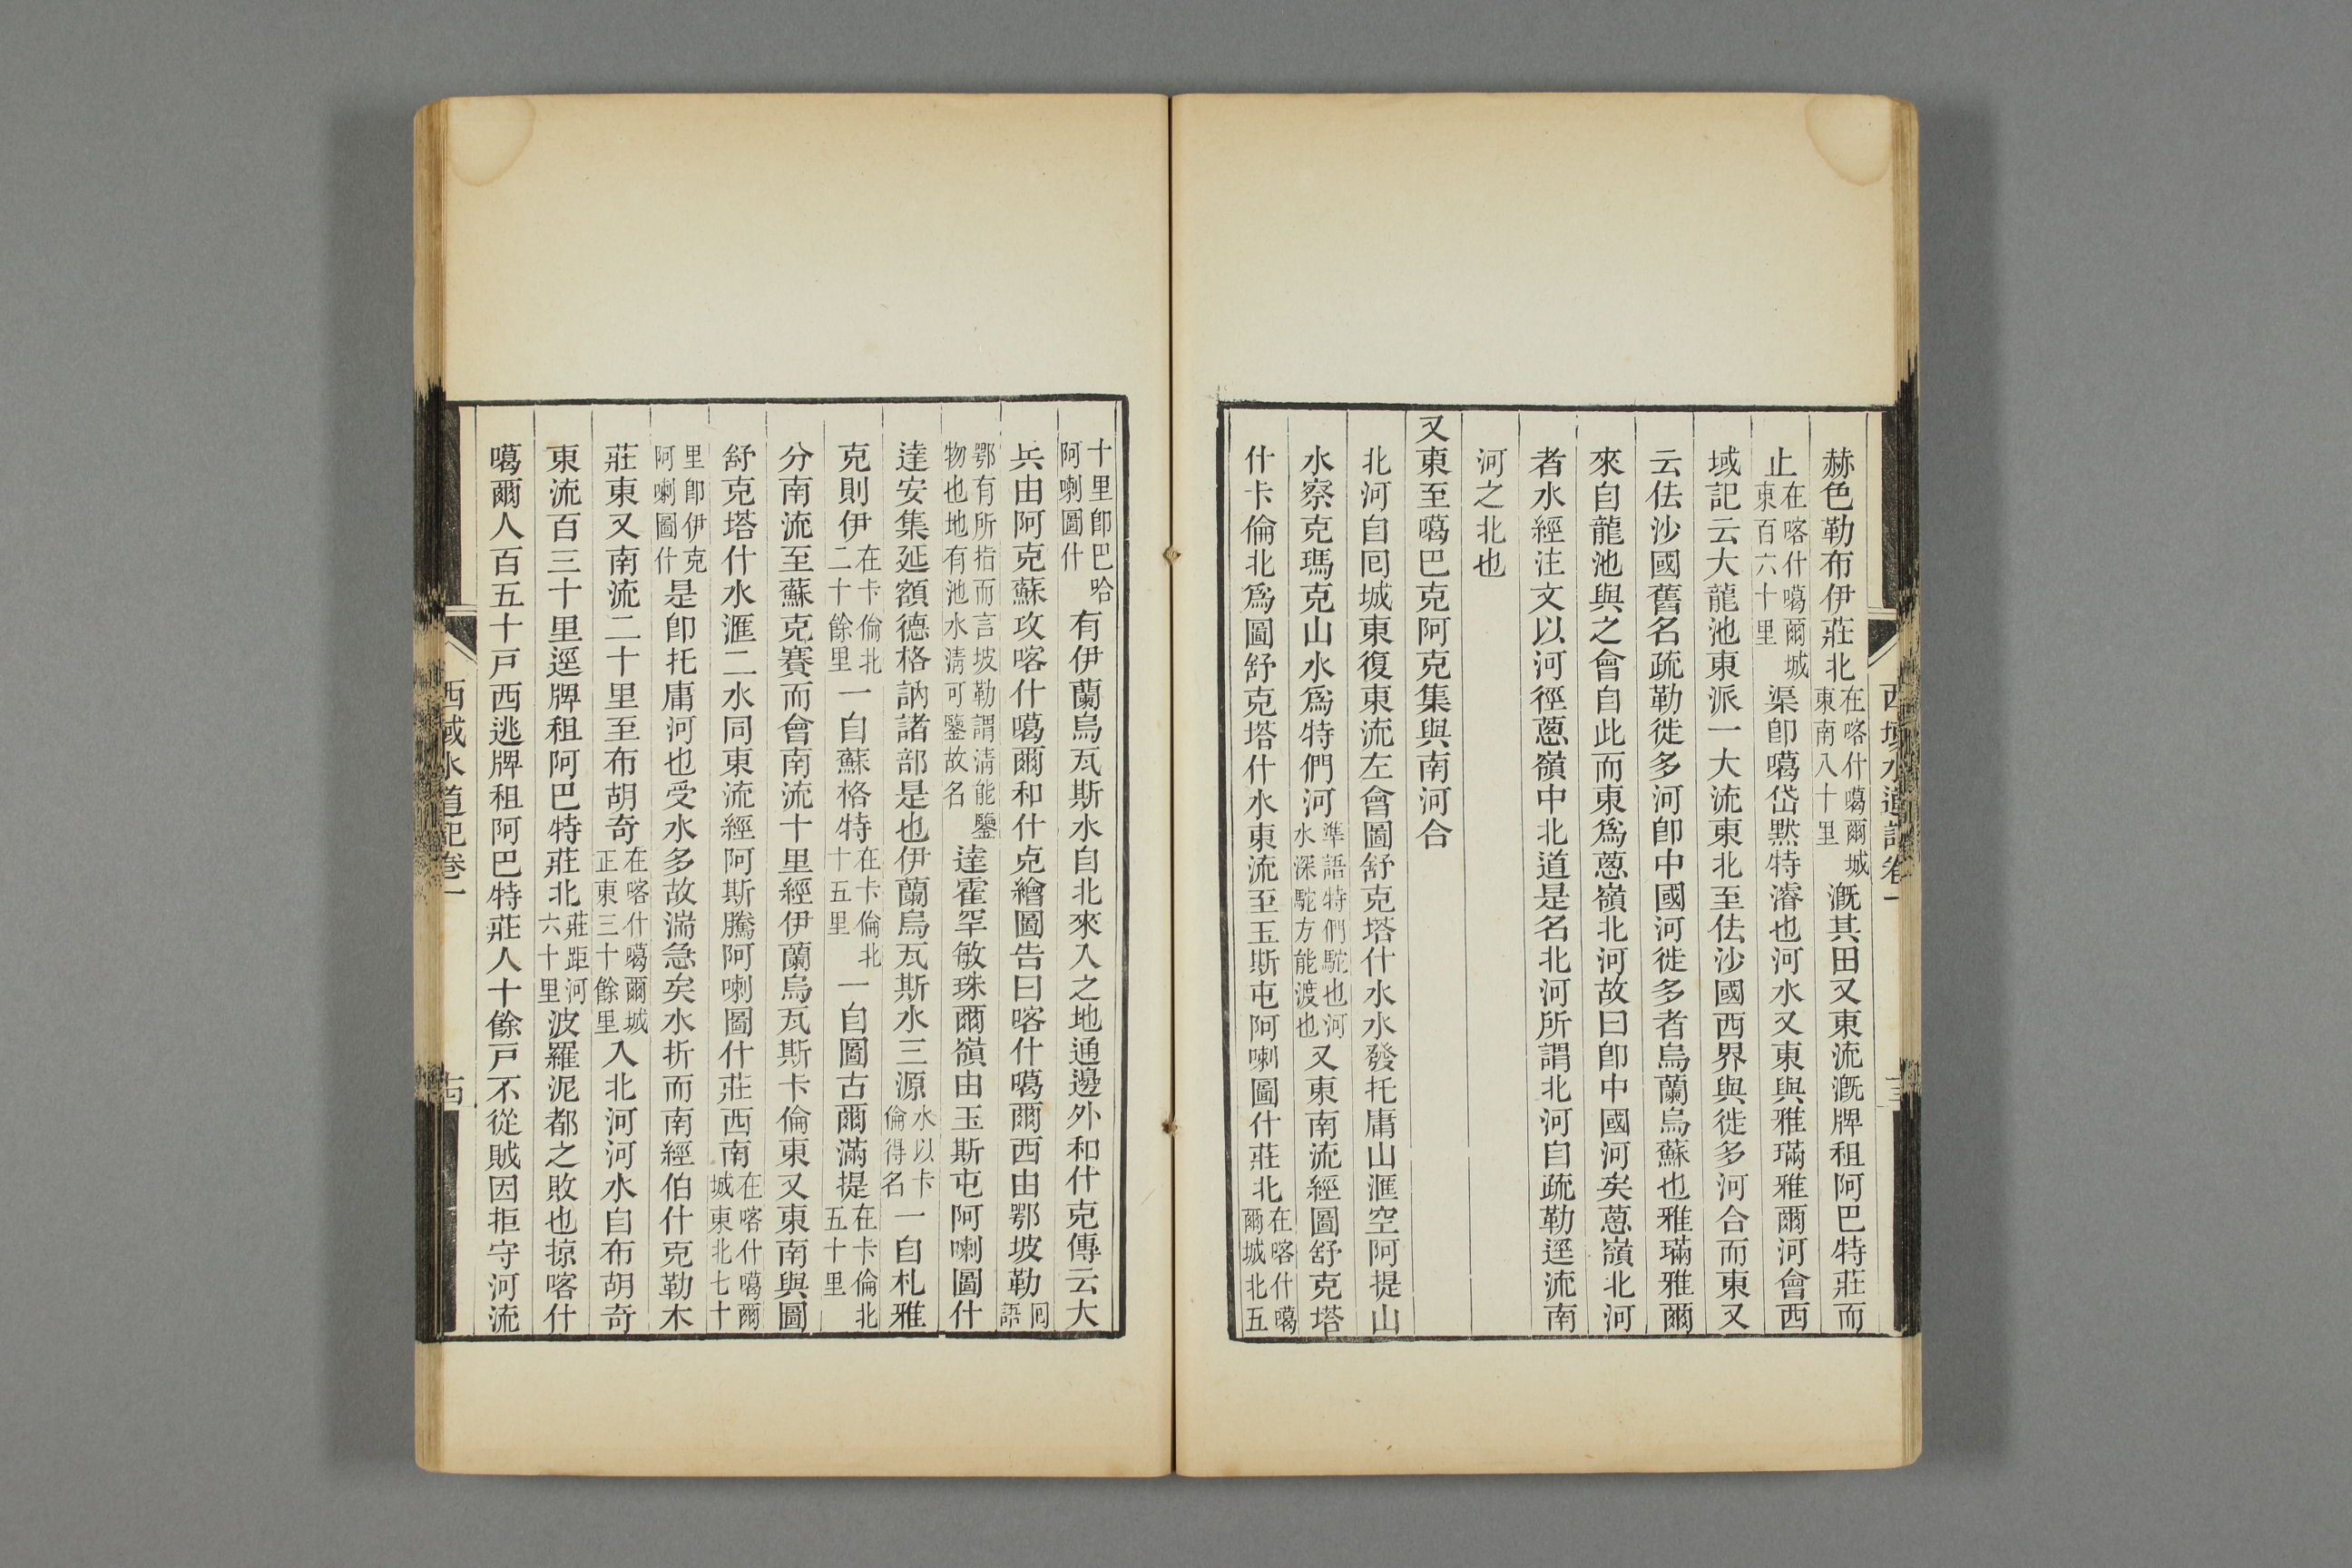 赫色勒布伊莊北在喀什噶爾城東南八十里漑其田又東流漑牌租阿巴特莊而
止在喀什噶爾城東百六十里渠卽噶岱黙特濬也河水又東與雅璊雅爾河會西
域記云大龍池東派一大流東北至佉沙國西界與徙多河合而東又
云佉沙國舊名疏勒徙多河卽中國河徙多者烏蘭烏蘇也雅璊雅爾
來自龍池與之會自此而東爲蔥嶺北河故曰卽中國河矣蔥嶺北河
者水經注文以河徑蔥嶺中北道是名北河所謂北河自疏勒逕流南
河之北也
又東至噶巴克阿克集與南河合
北河自囘城東復東流左會圖舒克塔什水水發托庸山滙空阿提山
水察克瑪克山水爲特們河準語特們駝也河水深駝方能渡也又東南流經圖舒克塔
什卡倫北爲圖舒克塔什水東流至玉斯屯阿喇圖什莊北在喀什噶爾城北五
西域水道記卷一
十里卽巴哈阿喇圖什有伊蘭烏瓦斯水自北來入之地通邊外和什克傳云大
兵由阿克蘇攻喀什噶爾和什克繪圖告曰喀什噶爾西由鄂坡勒囘語
鄂有所指而言坡勒謂淸能鑒物也地有池水淸可鑒故名達霍罕敏珠爾嶺由玉斯屯阿喇圖什
達安集延額德格訥諸部是也伊蘭烏瓦斯水三源水以卡倫得名一自札雅
克則伊在卡倫北二十餘里一自蘇格特在卡倫北十五里一自圖古爾滿提在卡倫北五十里
分南流至蘇克賽而會南流十里經伊蘭烏瓦斯卡倫東又東南與圖
舒克塔什水滙二水同東流經阿斯騰阿喇圖什莊西南在喀什噶爾城東北七十
里卽伊克阿喇圖什是卽托庸河也受水多故湍急矣水折而南經伯什克勒木
莊東又南流二十里至布胡奇在喀什噶爾城正東三十餘里入北河河水自布胡奇
東流百三十里逕牌租阿巴特莊北莊距河六十里波羅泥都之敗也掠喀什
噶爾人百五十戸西逃牌租阿巴特莊人十餘戸不從賊因拒守河流
西域水道記卷一